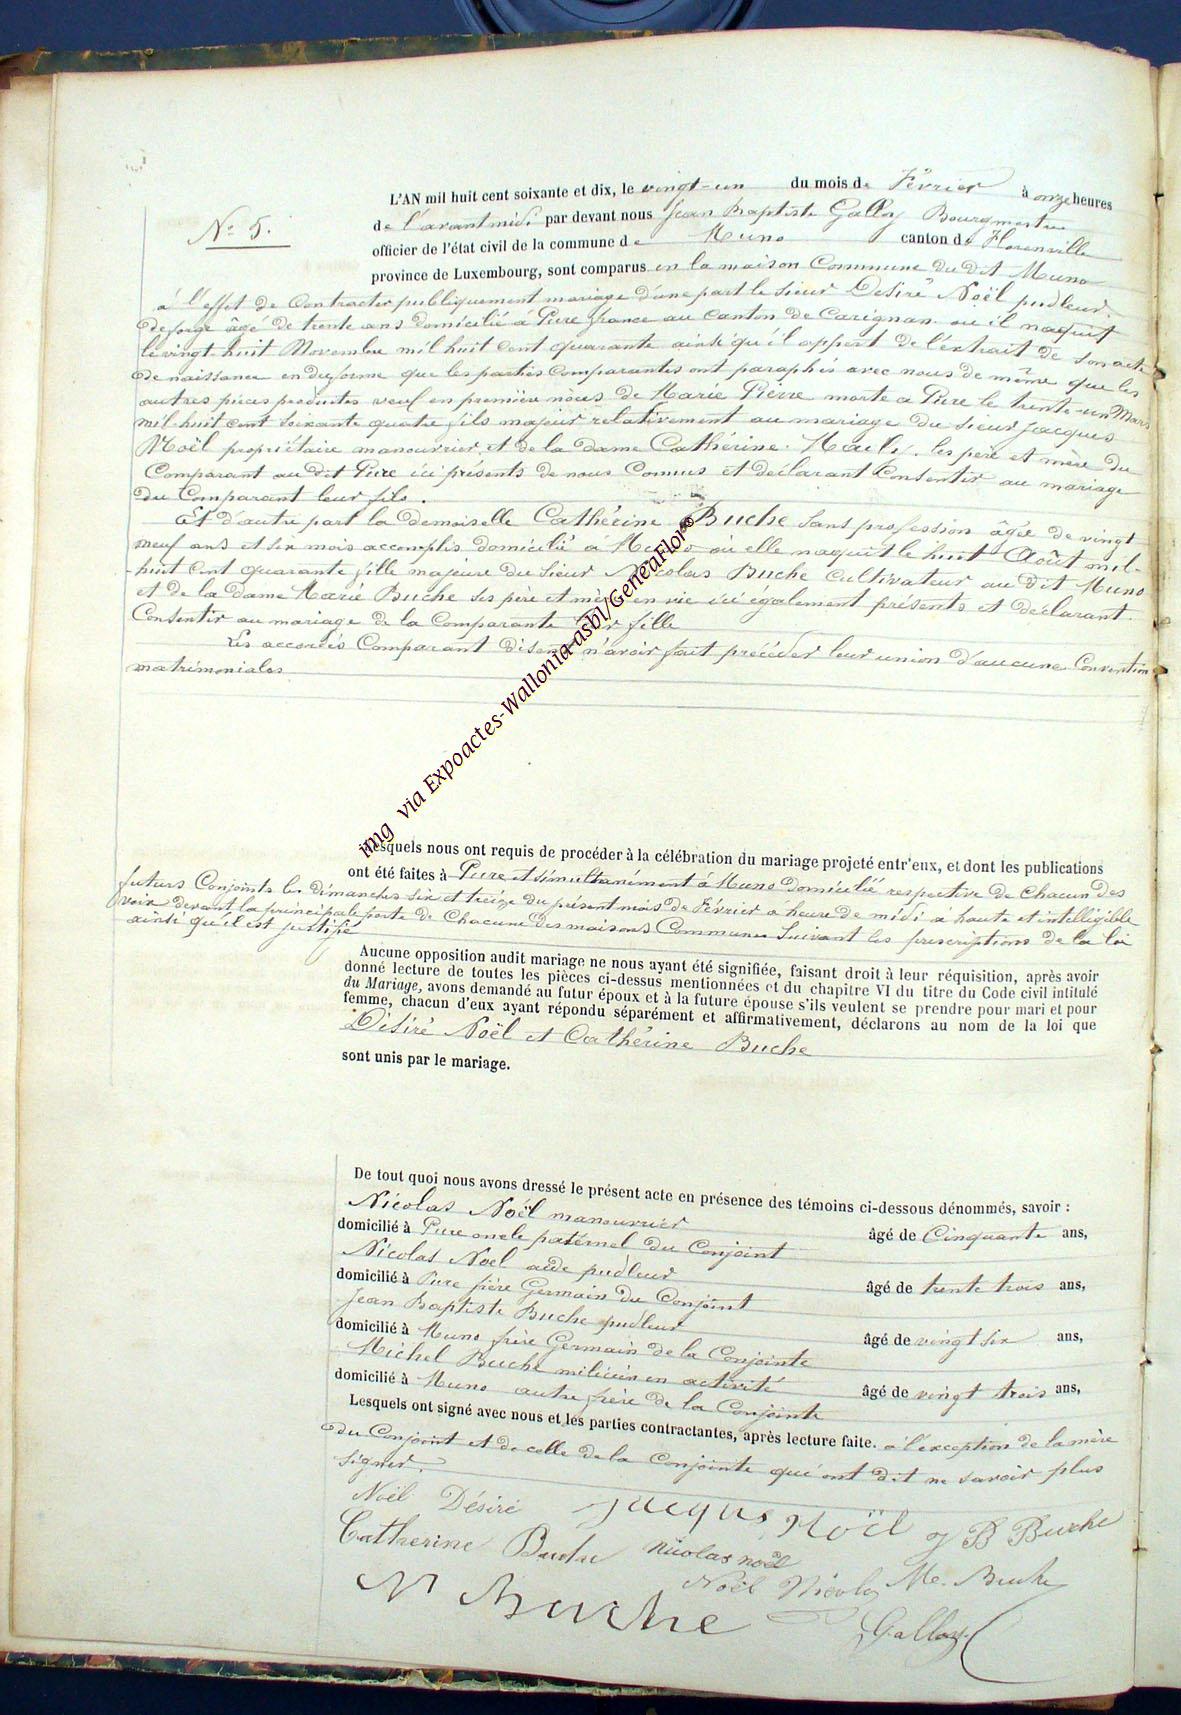 N° 5.
L'AN mil huit cent soixante et dix, le vingt-un du mois de Février à onze heures
de l'avant midi par devant nous Jean Baptiste Galloy Bourgmestre
officier de l'état civil de la commune de Muno canton de Florenville
province de Luxembourg, sont comparus en la maison Commune du dit Muno
à l'effet de Contracter publiquement mariage d'une part le Sieur Désiré Noël pudleur
de forge âgé de trente ans domicilié à Pure france au Canton de Carignan où il naquit
le vingt huit Novembre mil huit cent quarante ainsi qu'il appert de l'extrait de son acte
de naissance en due forme que les parties Comparantes ont paraphés avec nous de même que les
autres pièces produites veuf en première noces de Marie Pierre morte à Pure le trente-un Mars
mil huit cent soixante quatre fils majeur relativement au mariage du sieur Jacques
Noël propriétaire manouvrier et de la dame Cathérine les père et mère du
Comparant au dit Pure ici présents de nous Connus et déclarant Consentir au mariage
du Comparant leur fils.
Et d'autre part la demoiselle Cathérine Buche sans profession âgée de vingt
neuf ans et six mois accomplis domicilié à Muno où elle naquit le huit Août mil-
huit cent quarante fille majeure du Sieur Nicolas Buche Cultivateur au dit Muno
et de la Dame Marie Buche ses père et mère en vie ici également présents et déclarant
Consentir au mariage de la Comparante leur fille
Les accordés Comparant disent n'avoir fait précéder leur union d'aucune Convention
matrimoniales
img via Expoactes-Wallonia-asbl/GeneaFlor®
Lesquels nous ont requis de procéder à la célébration du mariage projeté entr'eux, et dont les publications
ont été faites à Pure et simultanément à Muno domicilié respective de Chacun des
futurs Conjoints les dimanches six et treize du présent mois de Février à heure de midi à haute et intelligible
voix devant la principale porte de Chacune des maisons Communes Suivant les prescriptions de la loi
ainsi qu'il est justifié
Aucune opposition audit mariage ne nous ayant été signifiée, faisant droit à leur réquisition, après avoir
donné lecture de toutes les pièces ci-dessus mentionnées et du chapitre VI du titre du Code civil intitulé
du Mariage, avons demandé au futur époux et à la future épouse s'ils veulent se prendre pour mari et pour
femme, chacun d'eux ayant répondu séparément et affirmativement, déclarons au nom de la loi que
Désiré Noël et Cathérine Buche
sont unis par le mariage.
De tout quoi nous avons dressé le présent acte en présence des témoins ci-dessous dénommés, savoir :
Nicolas Noël manouvrier
domicilié à Pure oncle paternel du Conjoint âgé de Cinquante ans,
Nicolas Noel aide pudleur
domicilié à Pure frère Germain du Conjoint âgé de trente trois ans,
Jean Baptiste Buche pudleur
domicilié à Muno frère Germain de la Conjointe âgé de vingt six ans,
Michel Buche milicien en activité
domicilié à Muno autre frère de la Conjointe âgé de vingt trois ans,
Lesquels ont signé avec nous et les parties contractantes, après lecture faite. à l'exception de la mère
du Conjoint et de celle de la Conjointe qui ont dit ne savoir plus
signer.
Noël Désiré Jacques Noël J B Buche
Catherine Buche Nicolas noël
Noël Nicolas Me. Buche
N Buche
Galloy